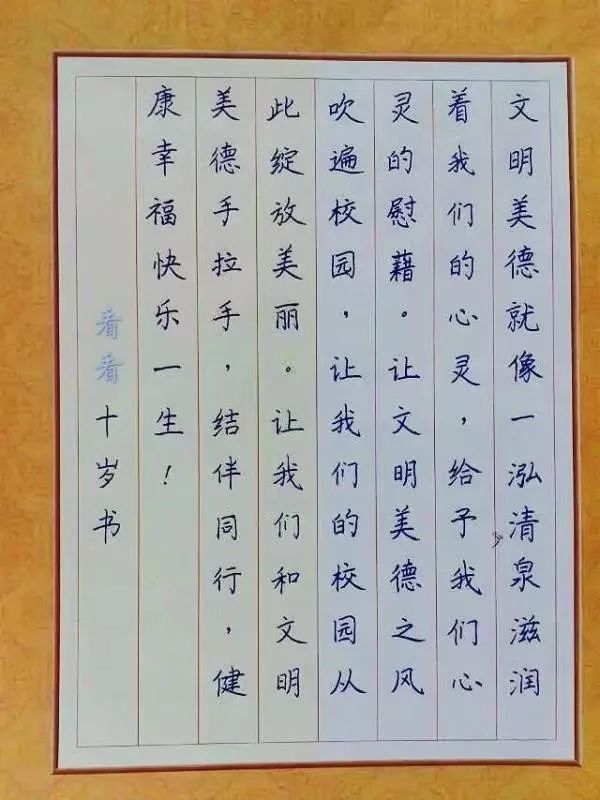 文明美德就像一泓清泉滋润
着我们的心灵，给予我们心
灵的慰藉。让文明美德之风
吹遍校园，让我们的校园从
此绽放美丽。让我们和文明
美德手拉手，结伴同行，健
康幸福快乐一生！
看看十岁书